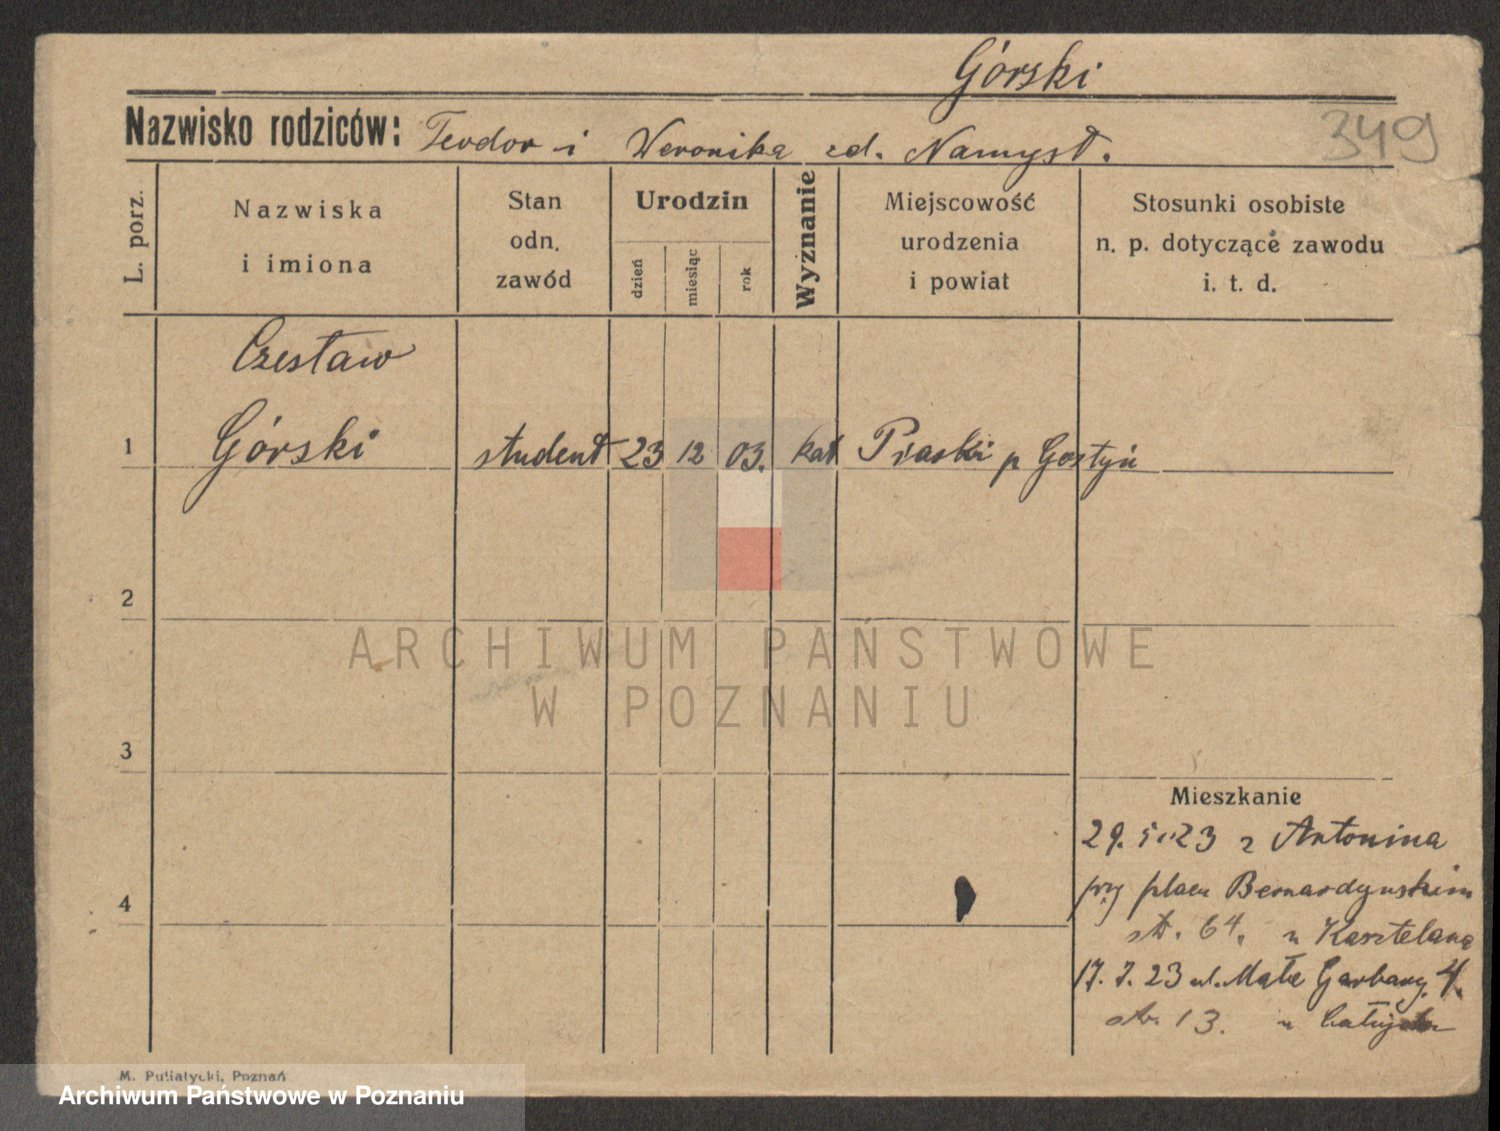 Górski
349
Nazwisko rodziców: Teodor i Weronika zd. Namysł.
L. porz.
Nazwiska
i imiona
Stan
odn.
zawód
Urodzin
dzień
miesiąc
rok
Wyznanie
Miejscowość
urodzenia
i powiat
Stosunki osobiste
n. p. dotyczące zawodu
i. t. d.
Czesław
1 Górski student 23 12 03. kat Piaski p Gostyń
2
3
4
Mieszkanie
29. 5 23 z Antonina
przy placu Bernardyńskim
64. u Kasztelana
17. 7. 23 ul. Małe Garbary 4.
13. u
M. Putiatycki, Poznań
ARCHIWUM PAŃSTWOWE
W POZNANIU
Archiwum Państwowe w Poznaniu